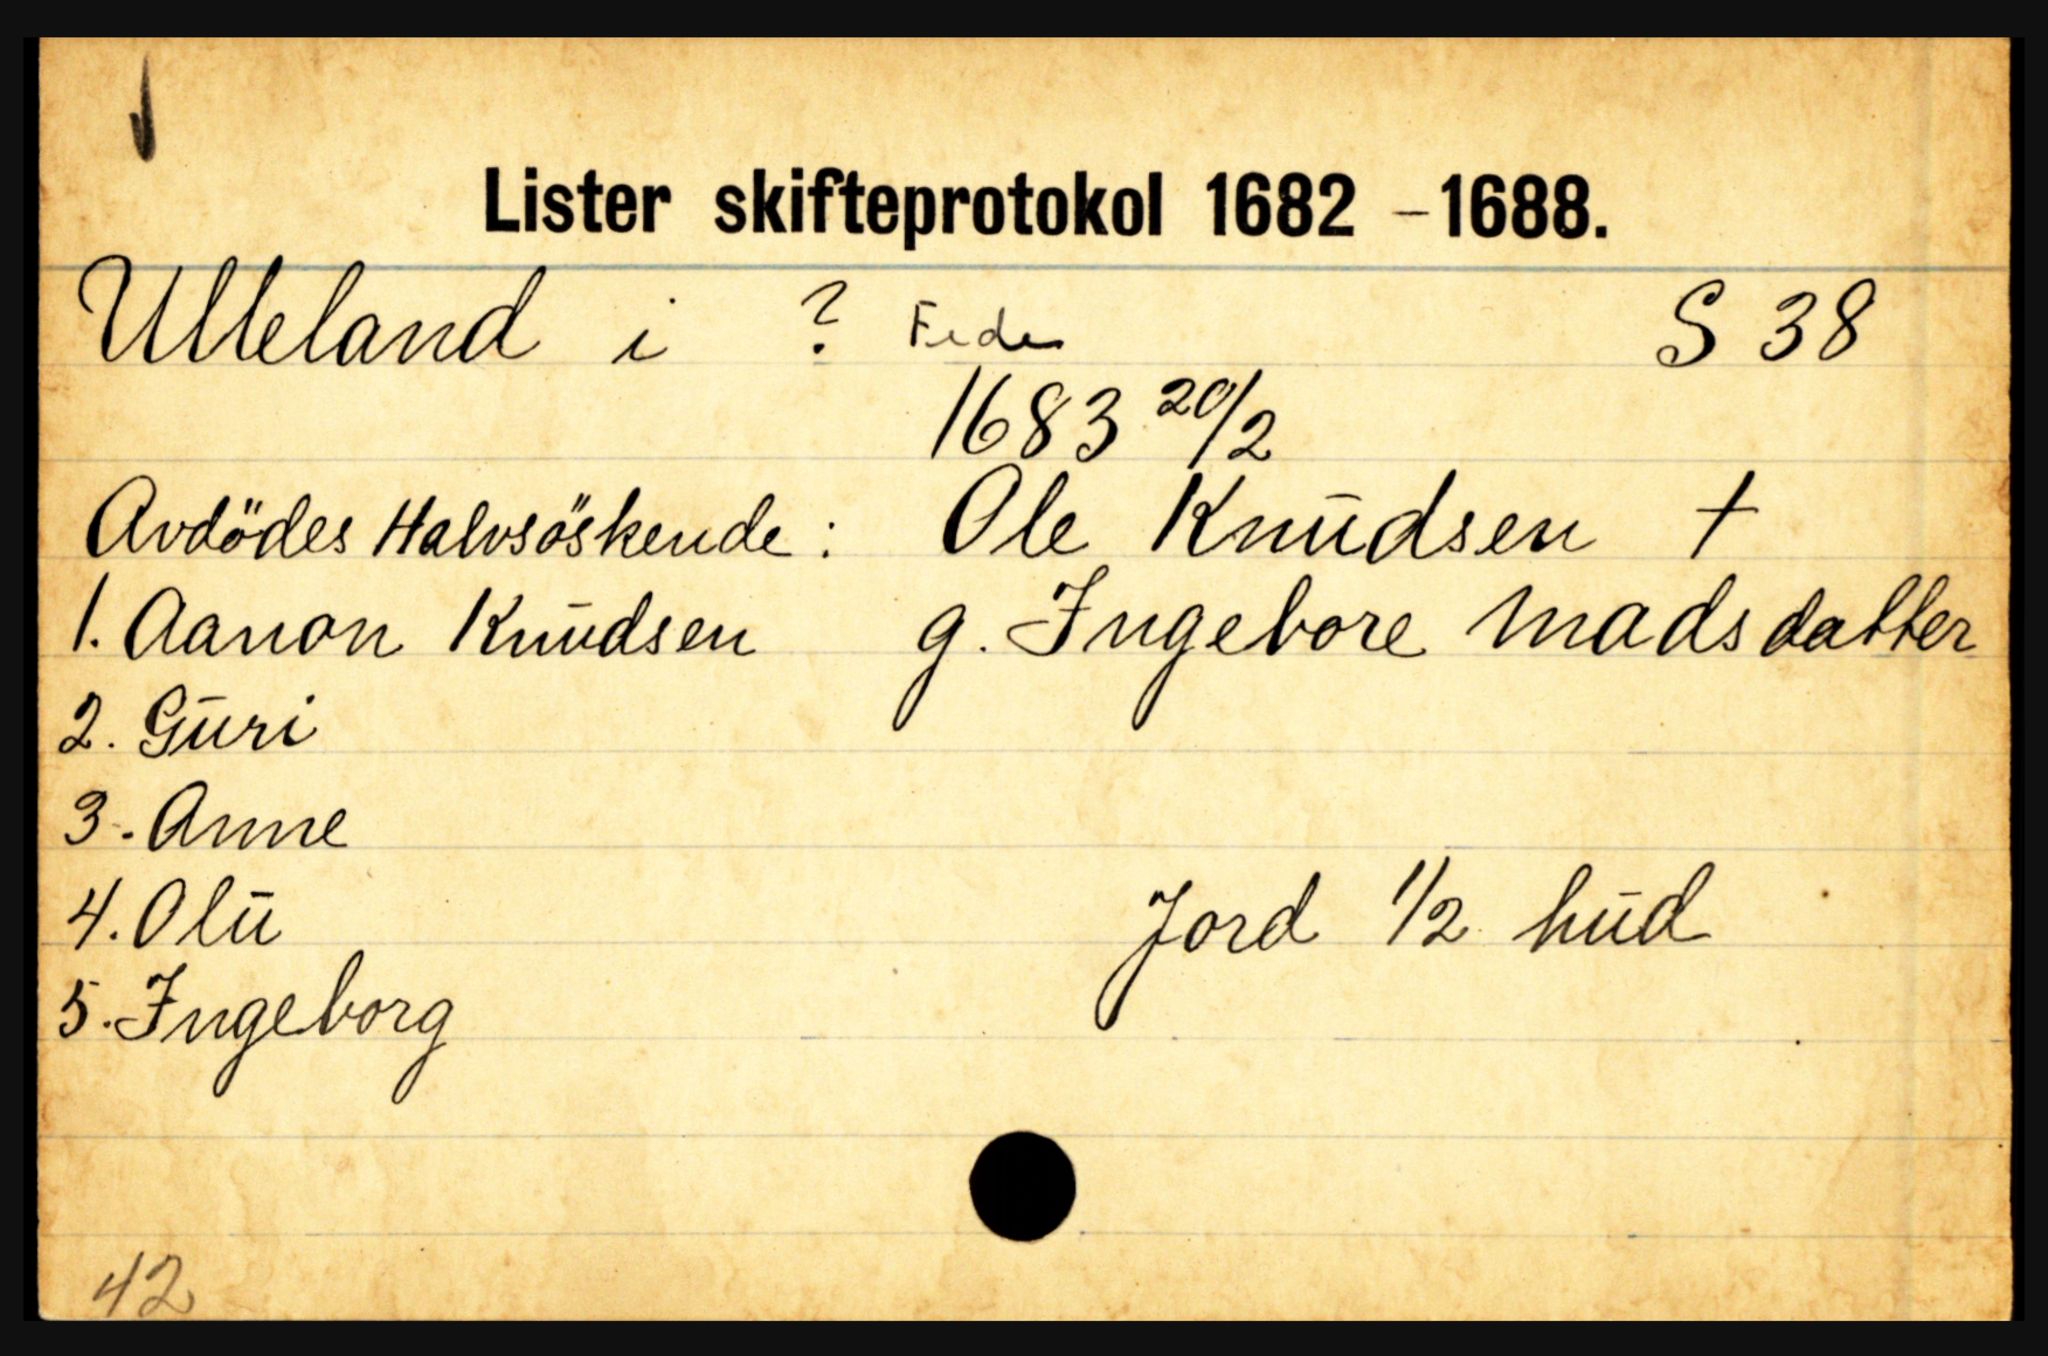 Lister skifteprotokol 1682 - 1688.
Ulleland i ? Feda S 38
1683 20/2
Avdödes Halvsöskende : Ole Knūdsen †
1. Aanon Knūdsen g. Ingebore Madsdatter
2. Gūri
3. Anne
4. Olū Jord 1/2 hūd
5. Ingeborg
42